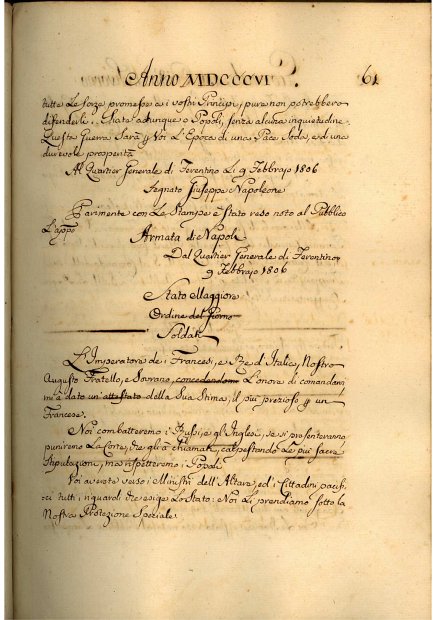 Anno MDCCCVI. 61
tutte le forze promesse a i vostri Principi, pure non potrebbero
difenderli. State adunque o Popoli, senza alcuna inquietudine.
Questa Guerra sarà p Voi L'Epoca di una Pace soda, e d una
durevole prosperità
Al Quartier Generale di Ferentino Li 9 Febbrajo 1806
Segnato Giuseppe Napoleone
Parimente con Le Stampe è stato reso noto al Pubblico
L'appo
Armata di Napoli
Dal Quartier Generale di Ferentino
9 Febbrajo 1806
Stato Maggiore
Ordine del Giorno
Soldati
L'Imperatore de i Francesi, e Re d'Italia, Nostro
Augusto Fratello, e Sovrano, concedendom L'onore di comandarvi,
mi à dato un'attestato della Sua Stima, il più prezioso p un
Francese.
Noi combatteremo i Russi, e gl'Inglesi, se si presenteranno,
puniremo La Corte, che gli à chiamati, calpestando Le più sacre
Stipulazioni, ma rispetteremo i Popoli.
Voi averete verso i Ministri dell'Altare, ed i Cittadini pacifi,
ci tutti i riguardi che esige Lo Stato: Noi Li prendiamo sotto la
Nostra Protezione Speziale.